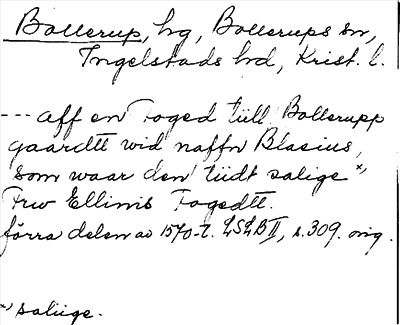 Bollerup, hg, Bollerups sn,
Ingelstads hd, Krist. l.
--- aff en Foged tiill Bollerupp
gaardtt wid naffn Blasius,
som waar den tiidt salige x)
Frw Ellinis Fogedtt.
förra delen av 1570-t. LSLB II, s. 309. orig.
x) saliige.